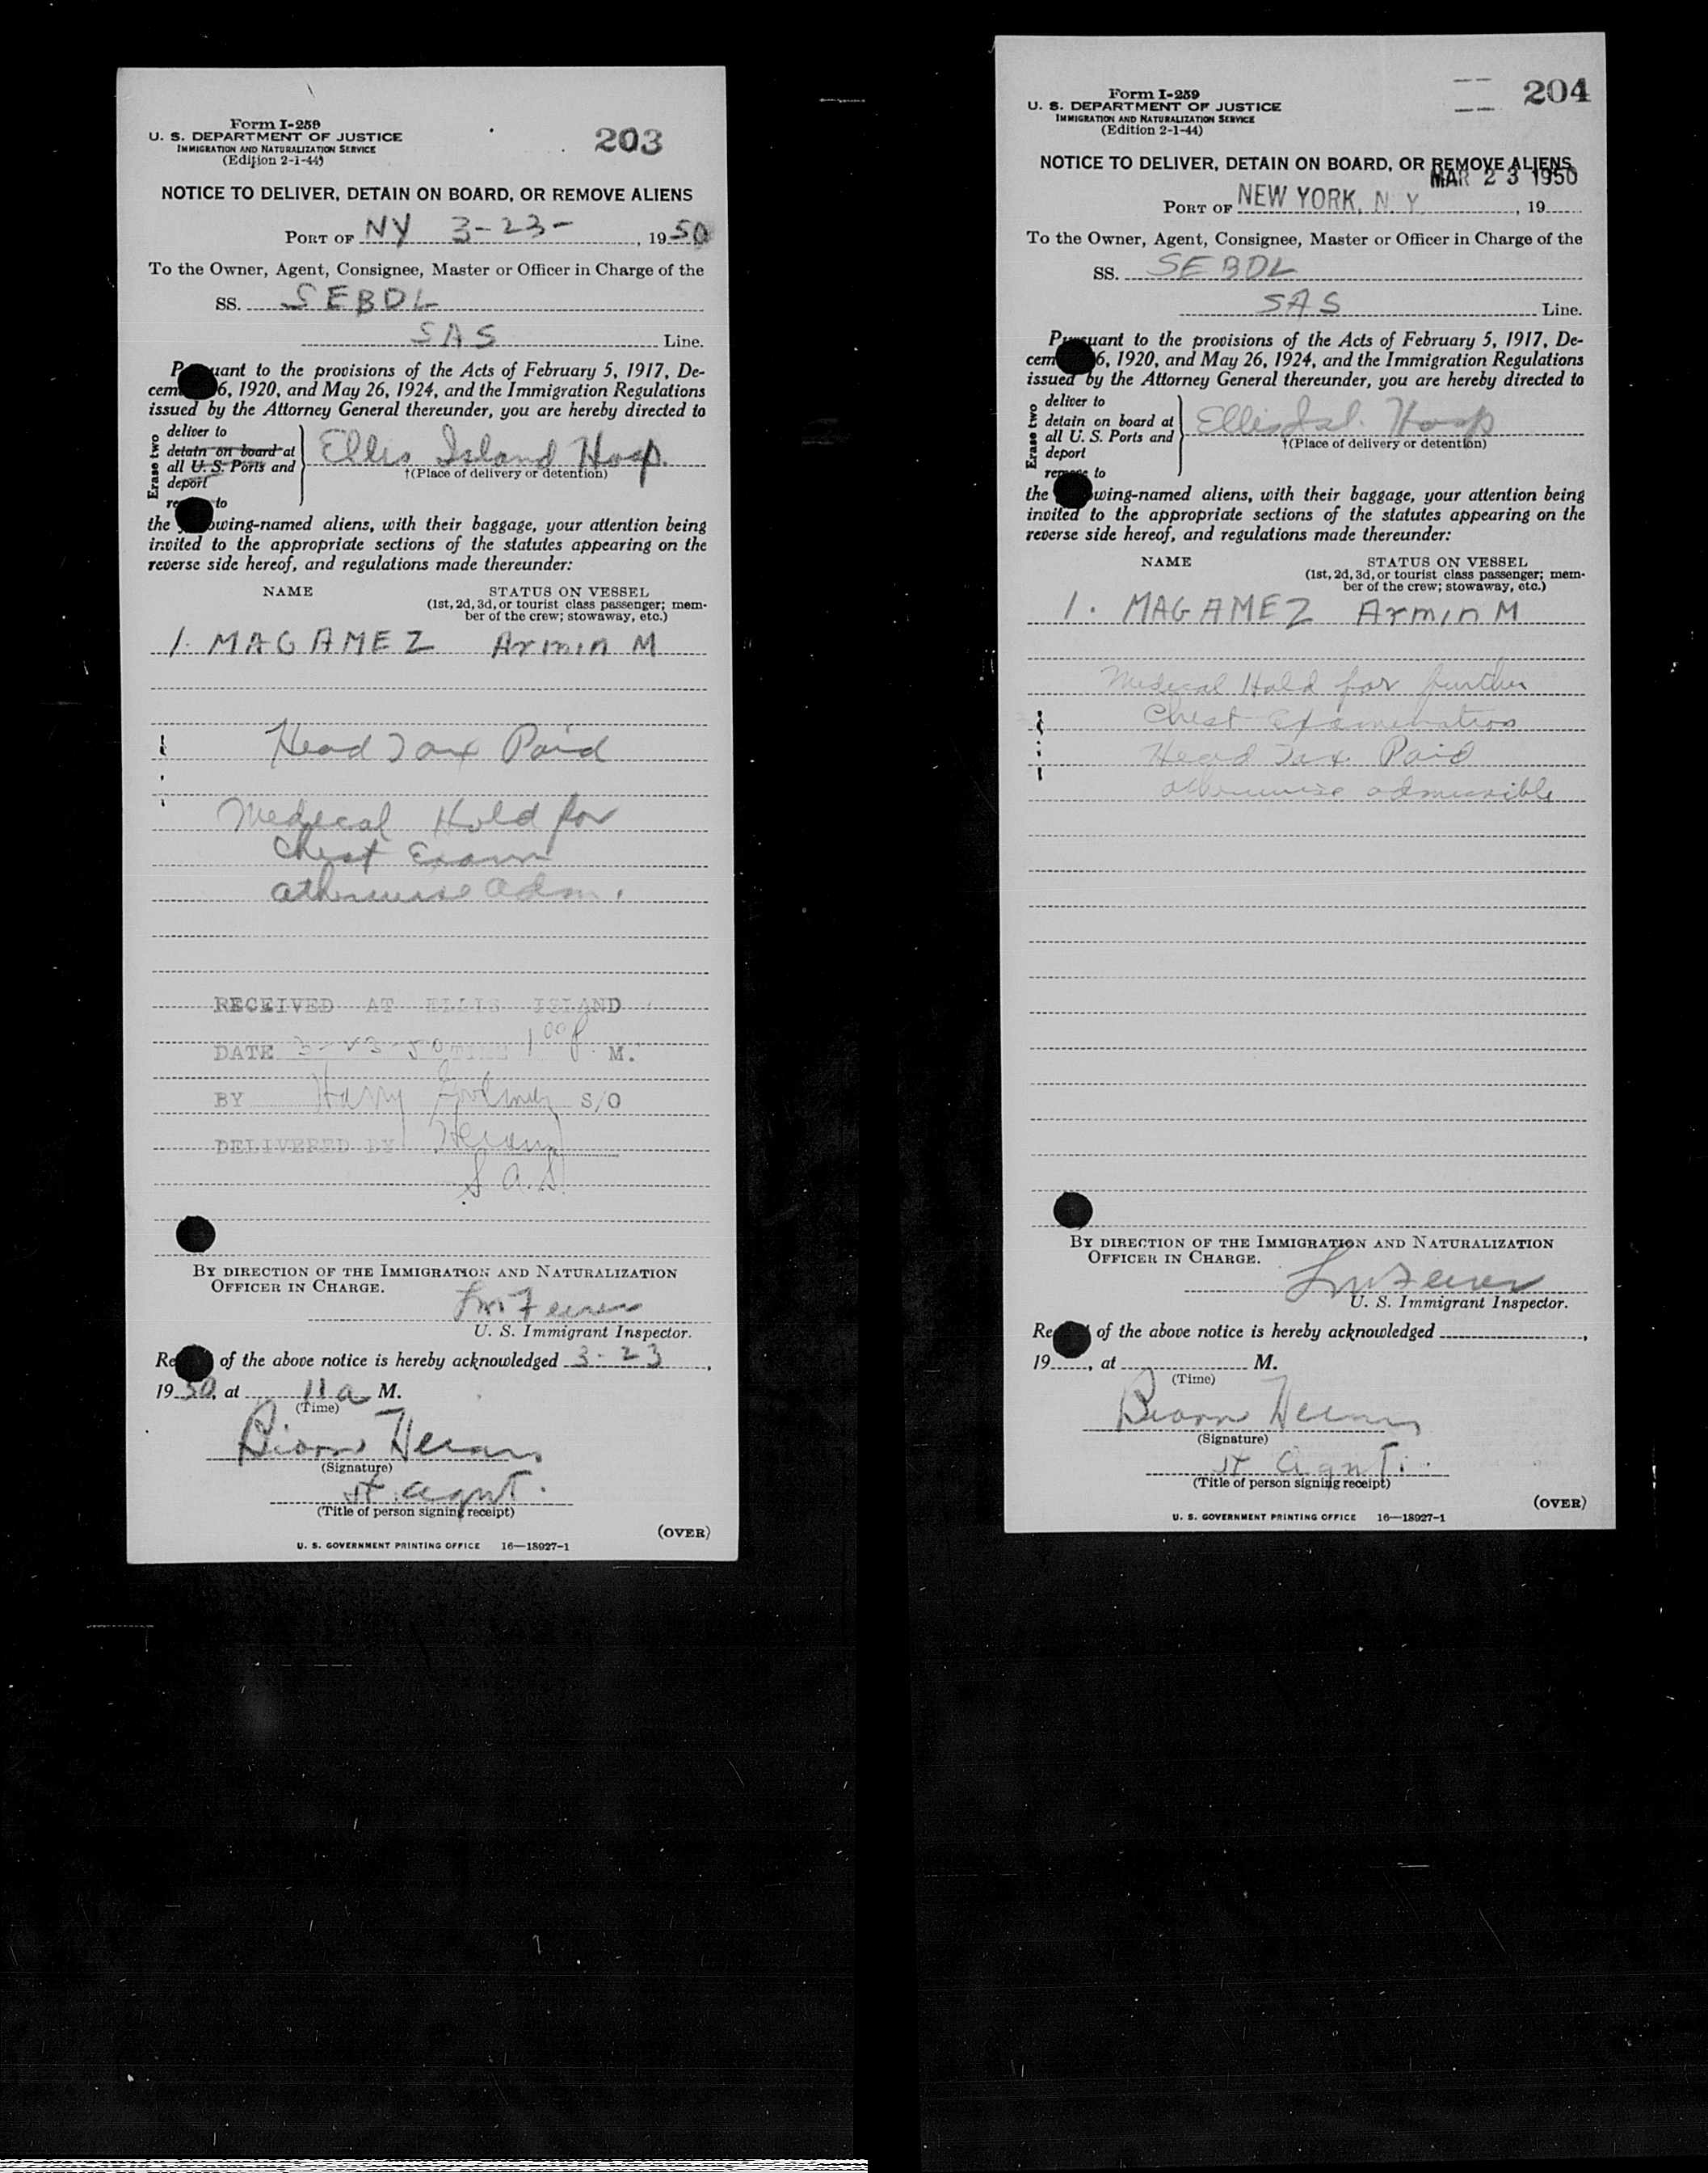 Form I-259
U. S. DEPARTMENT OF JUSTICE
IMMIGRATION AND NATURALIZATION SERVICE
(Edition 2-1-44)
203
NOTICE TO DELIVER, DETAIN ON BOARD, OR REMOVE ALIENS
PORT OF NY 3-23-, 1950
To the Owner, Agent, Consignee, Master or Officer in Charge of the
SS. SEBDL
SAS Line.
P uant to the provisions of the Acts of February 5, 1917, De-
cem 6, 1920, and May 26, 1924, and the Immigration Regulations
issued by the Attorney General thereunder, you are hereby directed to
Erase two
deliver to
detain on board at
all U. S. Ports and
deport
re to
Ellis Island Hosp.
†(Place of delivery or detention)
the owing-named aliens, with their baggage, your attention being
invited to the appropriate sections of the statutes appearing on the
reverse side hereof, and regulations made thereunder:
NAME STATUS ON VESSEL
(1st, 2d, 3d, or tourist class passenger; mem-
ber of the crew; stowaway, etc.)
1. MAGAMEZ Armin M
Head Tax Paid
Medical Hold for
Chest Exam
otherwise adm.
RECEIVED AT ELLIS ISLAND
DATE 3-23-50 TIME 1 00 P. M.
BY Harry S/O
DELIVERED BY
S.A.S.
BY DIRECTION OF THE IMMIGRATION AND NATURALIZATION
OFFICER IN CHARGE.
U. S. Immigrant Inspector.
Re of the above notice is hereby acknowledged 3-23,
1950, at 11 a M.
(Time)
(Signature)
St. agnt.
(Title of person signing receipt)
(OVER)
U. S. GOVERNMENT PRINTING OFFICE 16—18927-1
Form I-259
U. S. DEPARTMENT OF JUSTICE
IMMIGRATION AND NATURALIZATION SERVICE
(Edition 2-1-44)
204
NOTICE TO DELIVER, DETAIN ON BOARD, OR REMOVE ALIENS
MAR 23 1950
PORT OF NEW YORK, N. Y., 19
To the Owner, Agent, Consignee, Master or Officer in Charge of the
SS. SEBDL
SAS Line.
Pursuant to the provisions of the Acts of February 5, 1917, De-
cem 6, 1920, and May 26, 1924, and the Immigration Regulations
issued by the Attorney General thereunder, you are hereby directed to
Erase two
deliver to
detain on board at
all U. S. Ports and
deport
remove to
Ellis Isl. Hosp
†(Place of delivery or detention)
the wing-named aliens, with their baggage, your attention being
invited to the appropriate sections of the statutes appearing on the
reverse side hereof, and regulations made thereunder:
NAME STATUS ON VESSEL
(1st, 2d, 3d, or tourist class passenger; mem-
ber of the crew; stowaway, etc.)
1. MAGAMEZ Armin M
Medical Hold for further
Chest examination
Head Tax Paid
otherwise admissible
BY DIRECTION OF THE IMMIGRATION AND NATURALIZATION
OFFICER IN CHARGE.
U. S. Immigrant Inspector.
Re of the above notice is hereby acknowledged ,
19 , at M.
(Time)
(Signature)
St agnt.
(Title of person signing receipt)
(OVER)
U. S. GOVERNMENT PRINTING OFFICE 16—18927-1